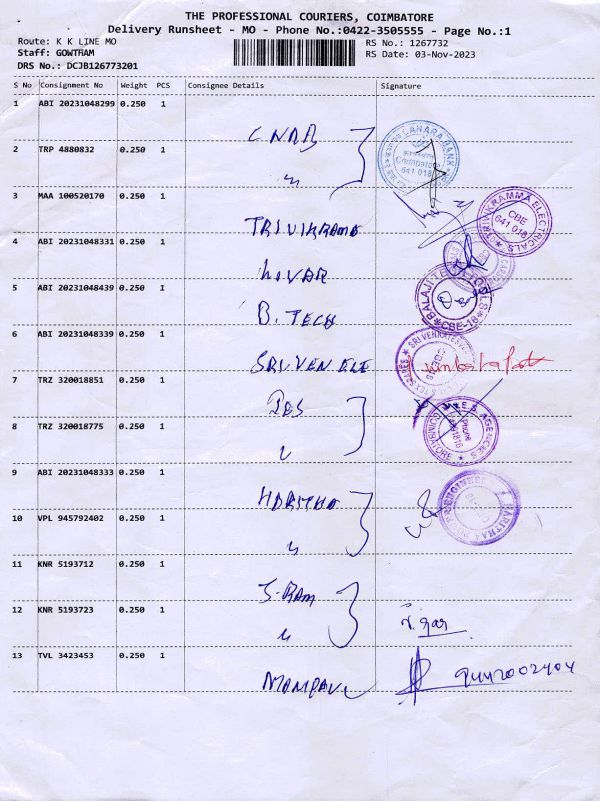 THE PROFESSIONAL COURIERS, COIMBATORE
Delivery Runsheet - MO - Phone No.:0422-3505555 - Page No.:1
Route: K K LINE MO
RS No.: 1267732
Staff: GOWTHAM
RS Date: 03-Nov-2023
DRS No.: DCJB126773201
S No Consignment No Weight PCS Consignee Details Signature
1 ABI 20231048299 0.250 1
2 TRP 4880832 0.250 1
CANARA BANK
Coimbatore
641 018
3 MAA 100520170 0.250 1
TRIVIKRAMA
TRIVIKRAMMA ELECTRICALS
CBE
641 018
4 ABI 20231048331 0.250 1
5 ABI 20231048439 0.250 1
B. TECH
CBE-18
6 ABI 20231048339 0.250 1
SRI VEN ELE
7 TRZ 320018851 0.250 1
8 TRZ 320018775 0.250 1
AGENCIES
9 ABI 20231048333 0.250 1
HARITHA
10 VPL 945792402 0.250 1
11 KNR 5193712 0.250 1
12 KNR 5193723 0.250 1
13 TVL 3423453 0.250 1